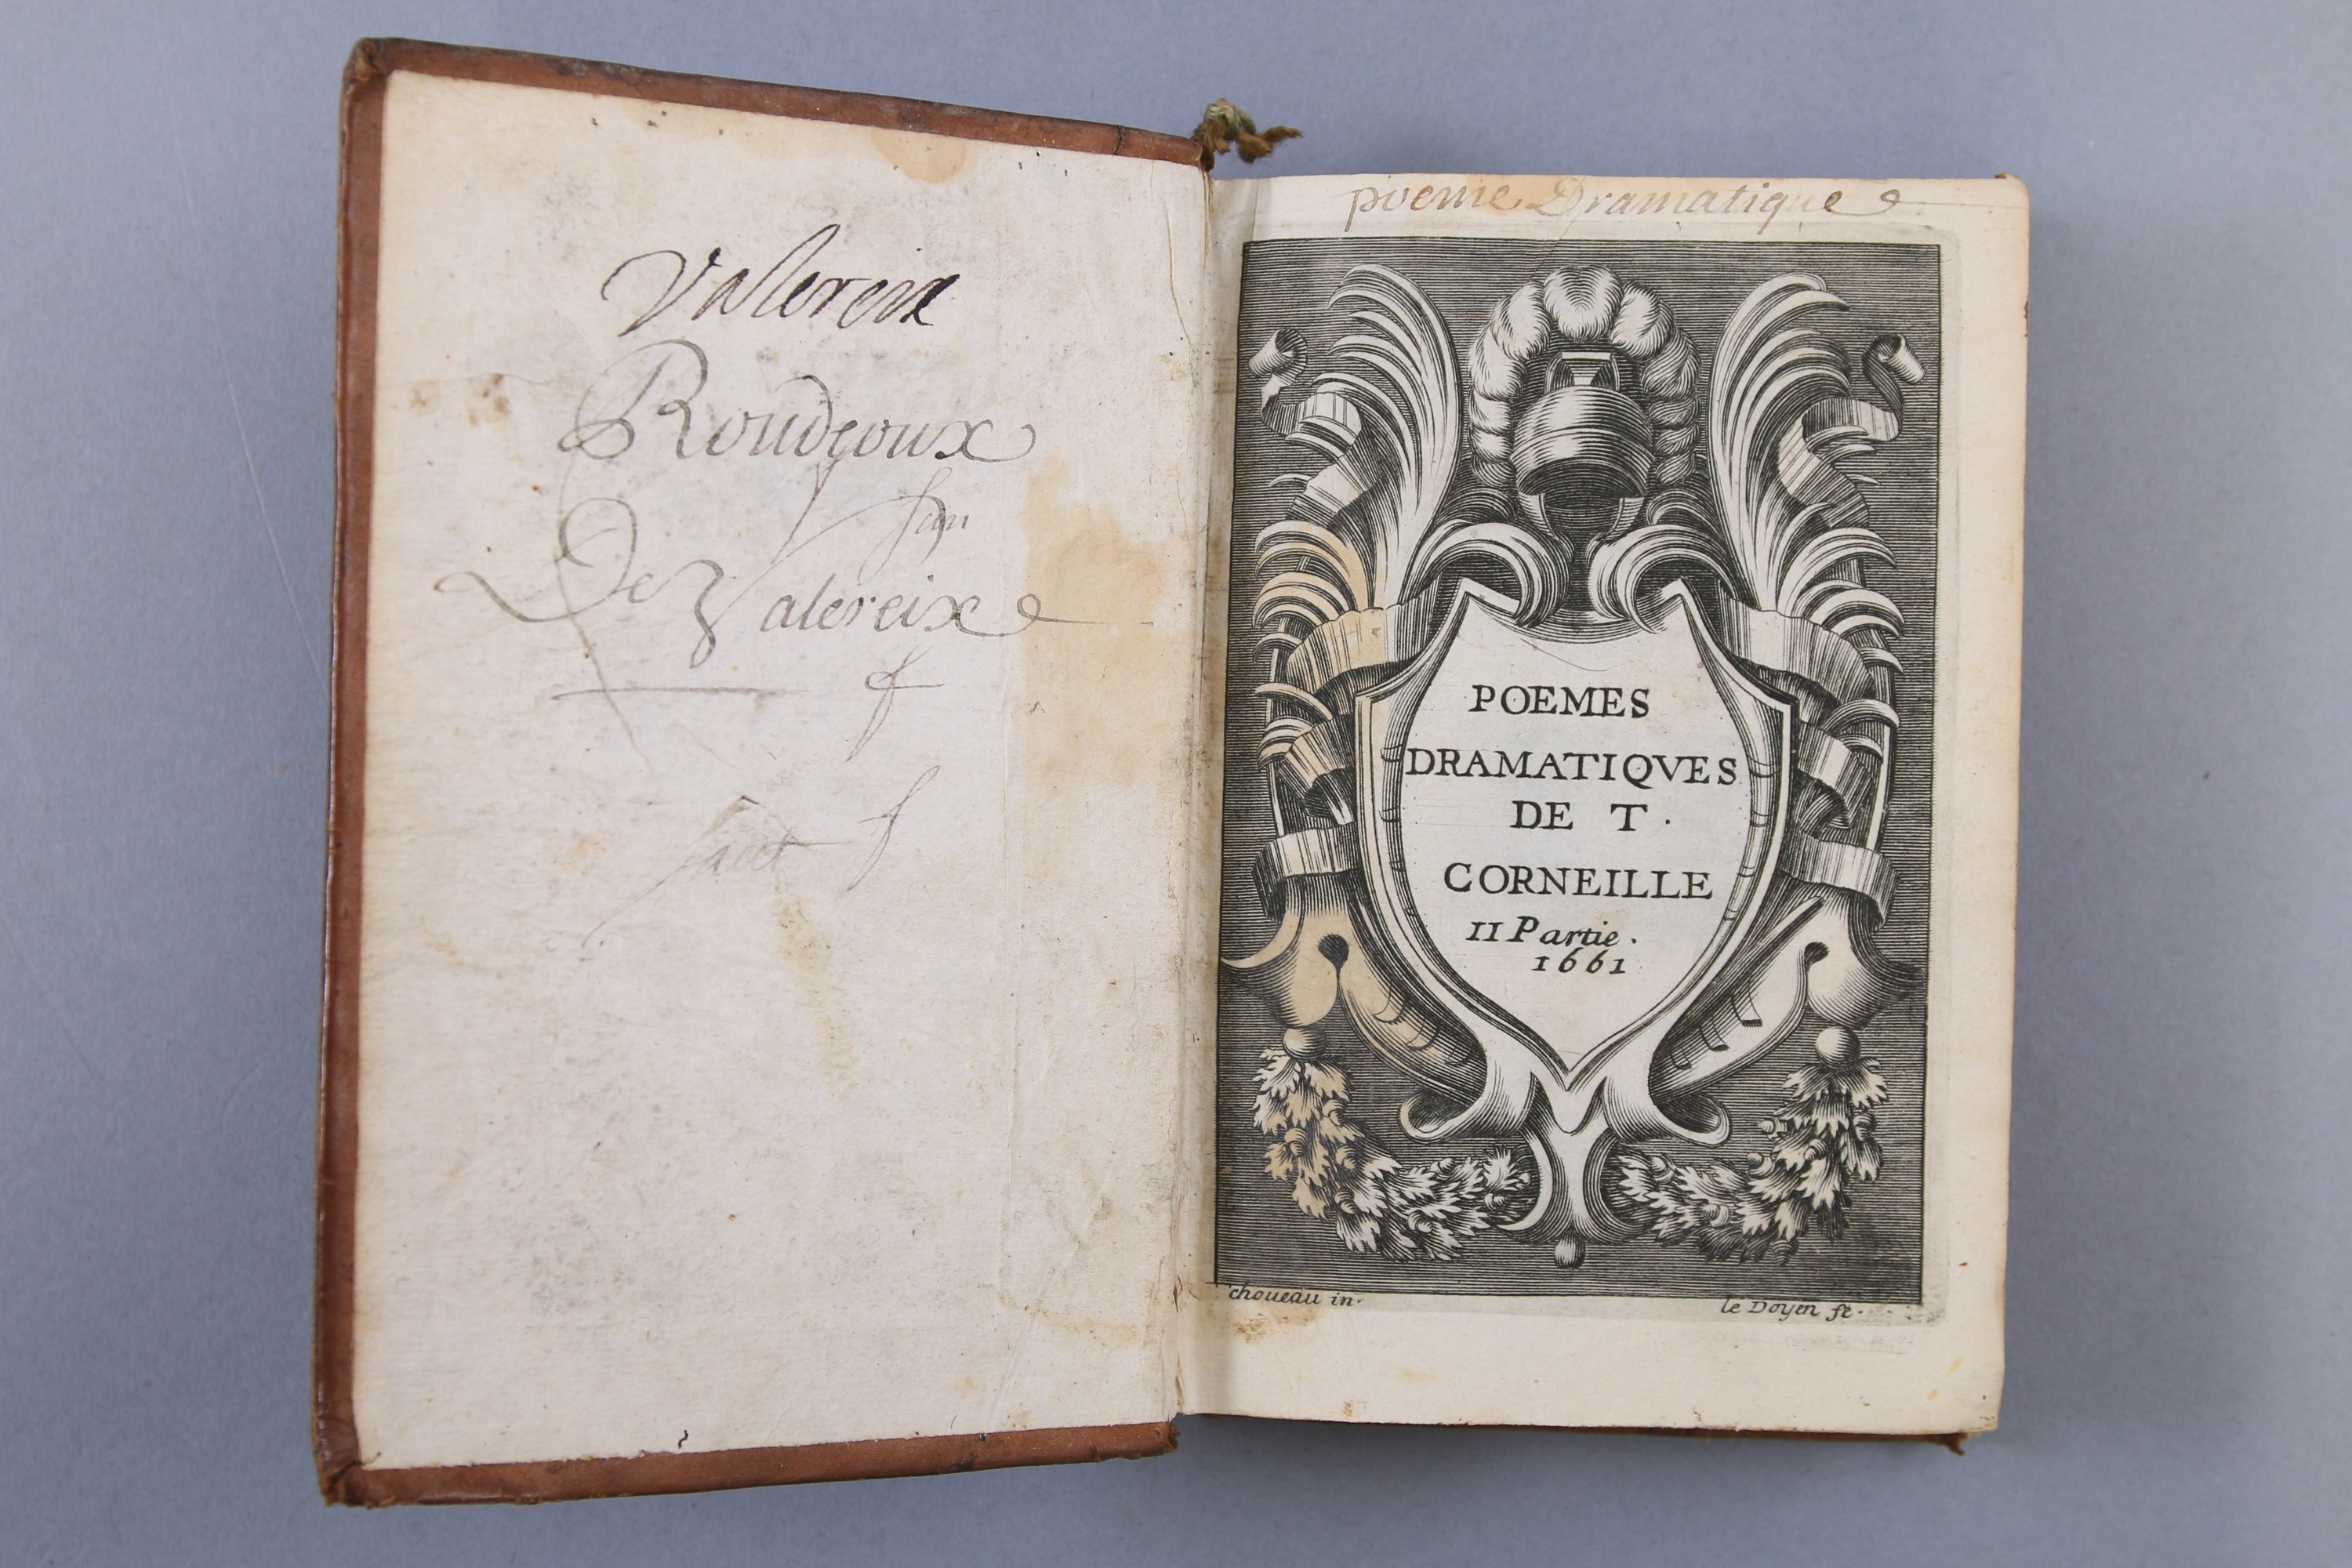 Valereix
Roudeoux
De Valereix
poeme Dramatique
POEMES
DRAMATIQVES
DE T.
CORNEILLE
II Partie.
1661
choueau in.
le Doyen fe.